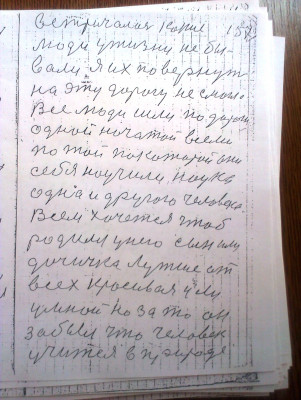 встричался какие 158
люди у жизни не бы-
вали я их повернут
на эту дорогу не смог.
Все люди шли по дороги
одной начатой всеми
по той по которой они
себя научили, наука
одна и другого человека
Всем хочется чтоб
родили у него сын или
дочичка лутше от
всех красивая и
умной но за то он
забыли что человек
учится в природе